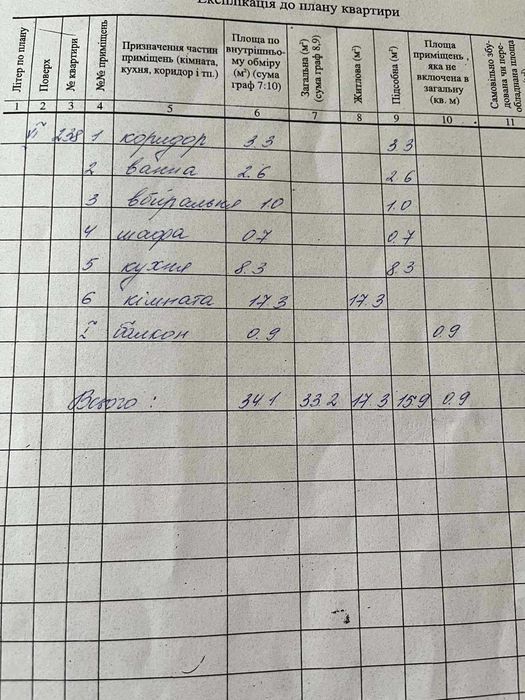 Експлікація до плану квартири
Літер по плану | Поверх | № квартири | №№ приміщень | Призначення частин приміщень (кімната, кухня, коридор і тп.) | Площа по внутрішньо-му обміру (м²) (сума граф 7:10) | Загальна (м²) (сума граф 8,9) | Житлова (м²) | Підсобна (м²) | Площа приміщень, яка не включена в загальну (кв. м) | Самовільно збу-дована чи пере-обладнана площа
1 2 3 4 5 6 7 8 9 10 11
VI 238 1 коридор 3.3 3.3
2 ванна 2.6 2.6
3 вбиральня 1.0 1.0
4 шафа 0.7 0.7
5 кухня 8.3 8.3
6 кімната 17.3 17.3
I балкон 0.9 0.9
Всього: 34.1 33.2 17.3 15.9 0.9